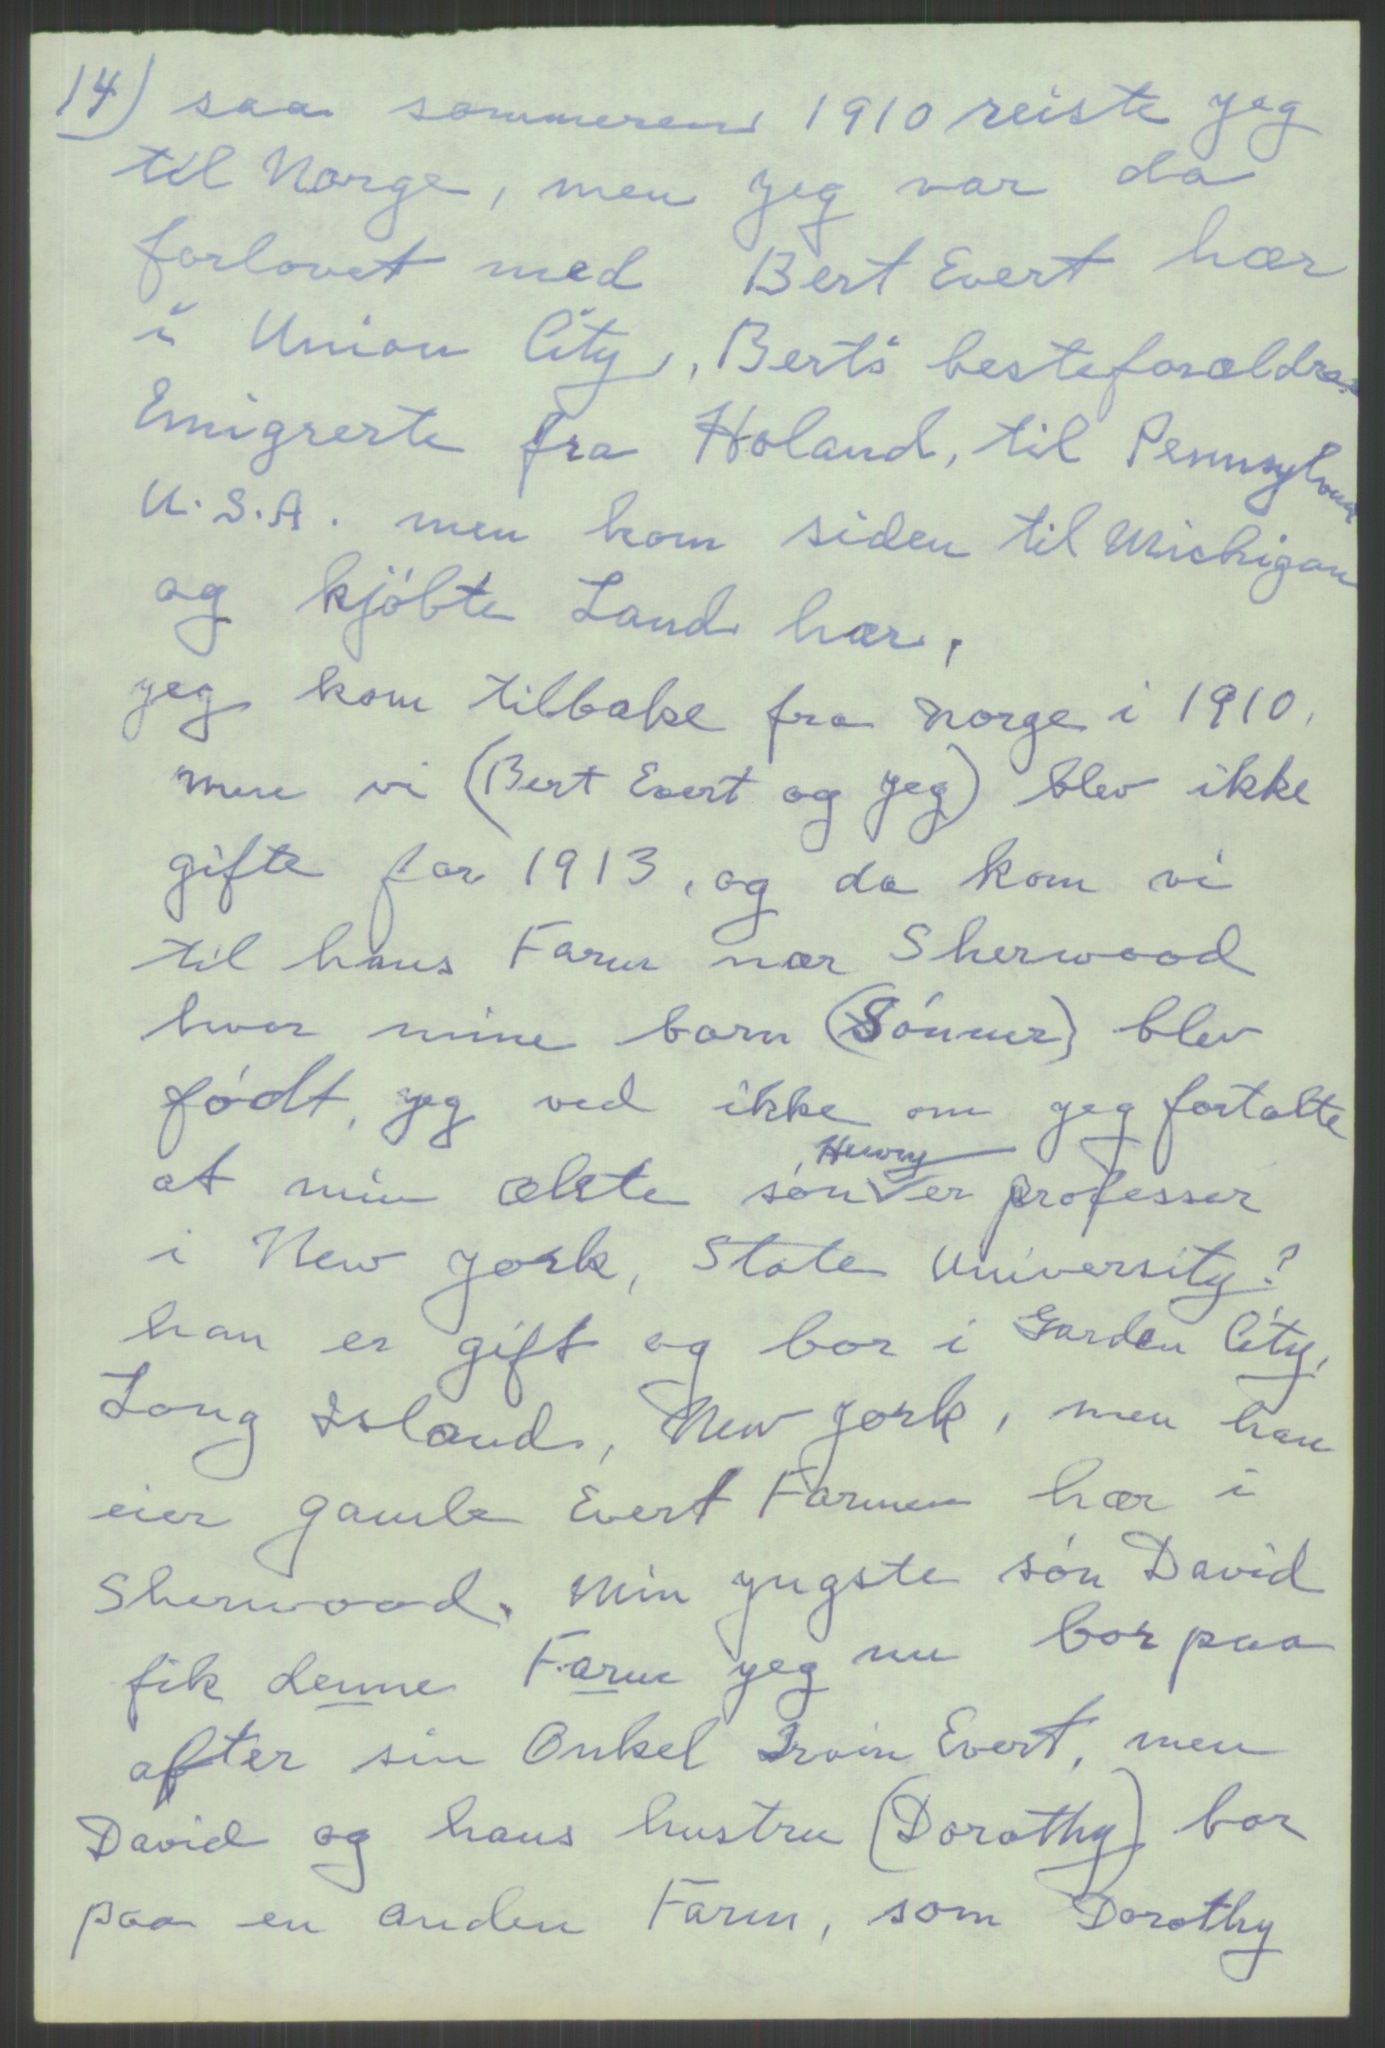 14) saa sommeren 1910 reiste jeg
til Norge, men jeg var da
forlovet med Bert Evert hær
i Union City, Bert's besteforældre
Emigrerte fra Holand, til Pennsylvania
U.S.A. men kom siden til Michigan
og kjöbte Land hær,
jeg kom tilbake fra Norge i 1910,
men vi (Bert Evert og jeg) blev ikke
gifte før 1913, og da kom vi
til hans Farm nær Sherwood
hvor mine barn (Sónner) blev
födt, jeg ved ikke om jeg fortalte
at min ælste són Henry er professer
i New York, State University?
han er gift og bor i Garden City,
Long Island, New York, men han
eier gamle Evert Farmen hær i
Sherwood. Min yngste són David
fik denne Farm jeg nu bor paa
after sin Onkel Irvin Evert, men
David og hans hustru (Dorothy) bor
paa en anden Farm, som Dorothy